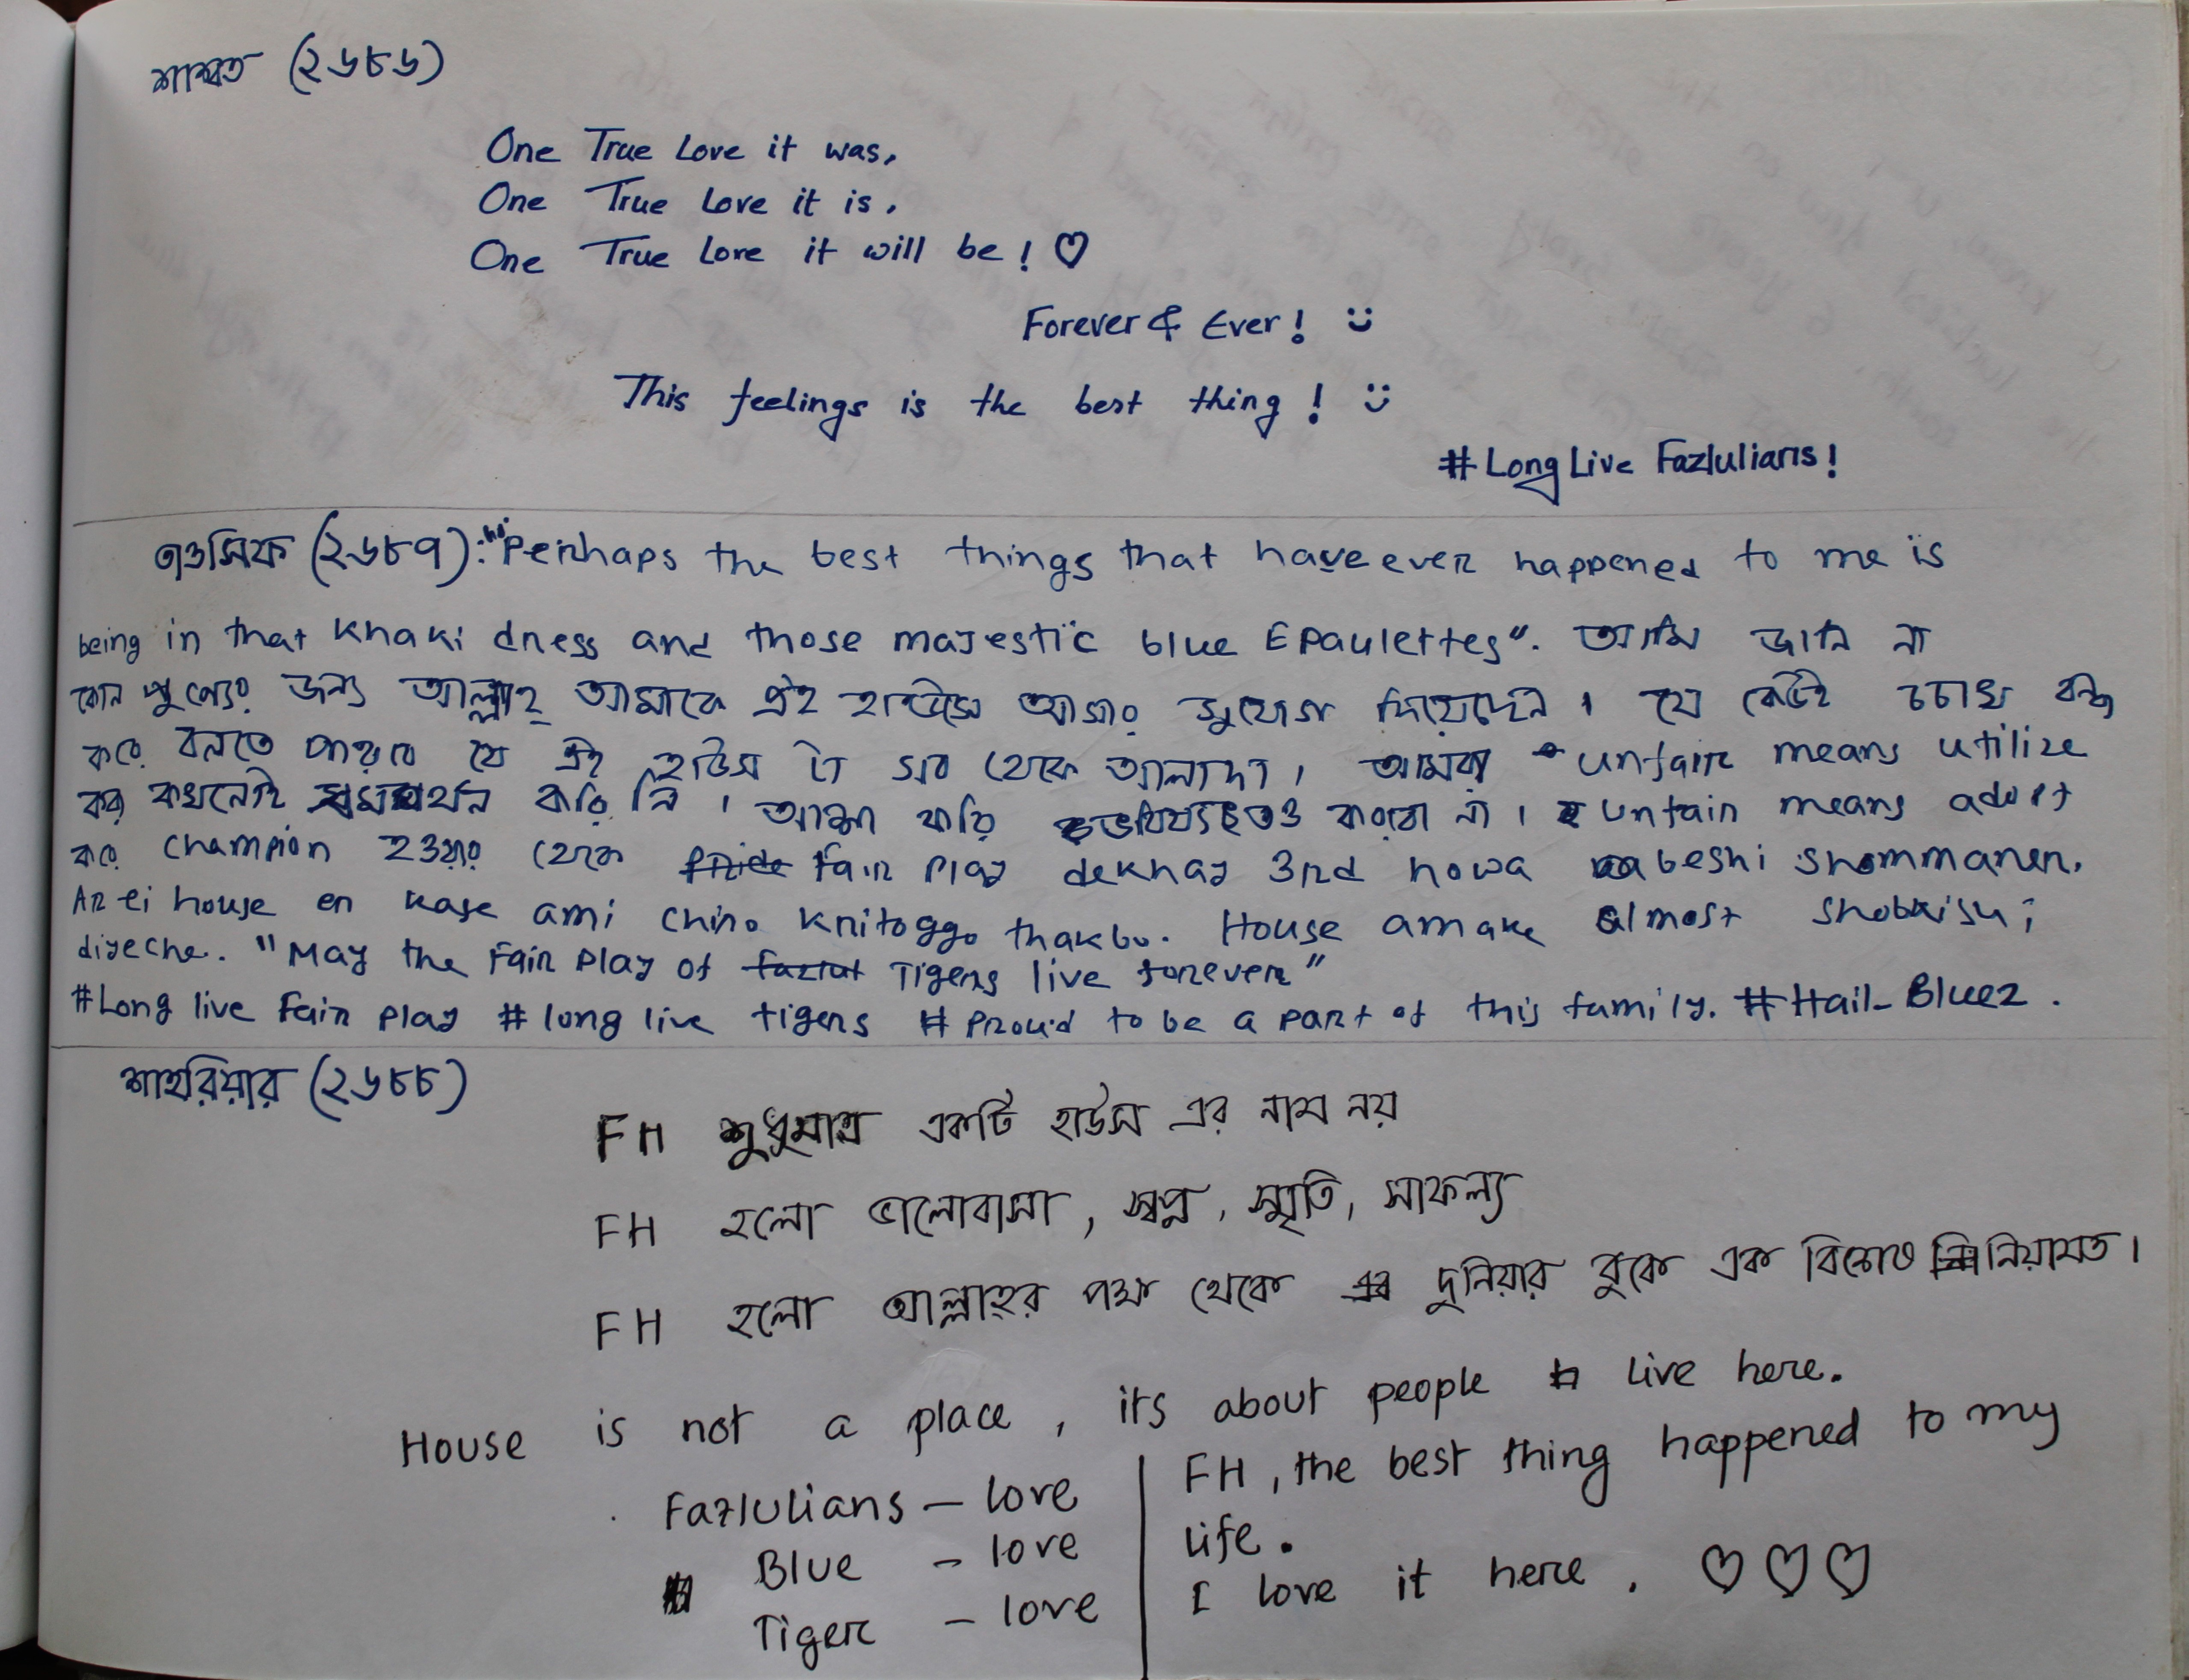 শাশ্বত (২৬৮৬)
One True Love it was,
One True Love it is.
One True Love it will be! ♡
Forever & Ever! :)
This feelings is the best thing! :)
#LongLive Fazlulians!
তাওসিফ (২৬৮৭): "Perhaps the best things that have ever happened to me is
being in that Khaki dress and those majestic blue Epaulettes". আমি জানি না
কোন পুণ্যের জন্য আল্লাহ্ আমাকে এই হাউসে আসার সুযোগ দিয়েছেন। যে কেউই চোখ বন্ধ
করে বলতে পারবে যে এই হাউস টা সব থেকে আলাদা। আমরা unfair means utilize
করা কখনোই সমর্থন করি নি। আশা করি ভবিষ্যতেও করবো না। unfair means adopt
করে champion হওয়ার থেকে fair play dekhay 3rd howa beshi shommaner.
Ar ei house er kase ami chiro kritoggo thakbo. House amake almost shobkisui
diyeche. "May the Fair Play of Tigers live forever"
#Long live Fair play #long live tigers # Proud to be a part of this family. #Hail_Bluez.
শাহরিয়ার (২৬৮৮)
FH শুধুমাত্র একটি হাউস এর নাম নয়
FH হলো ভালোবাসা, স্বপ্ন, স্মৃতি, সাফল্য
FH হলো আল্লাহ্‌র পক্ষ থেকে দুনিয়ার বুকে এক বিশেষ নিয়ামত।
House is not a place, its about people live here.
Fazlulians – love
Blue – love
Tiger – love
FH, the best thing happened to my
life.
I love it here. ♡♡♡